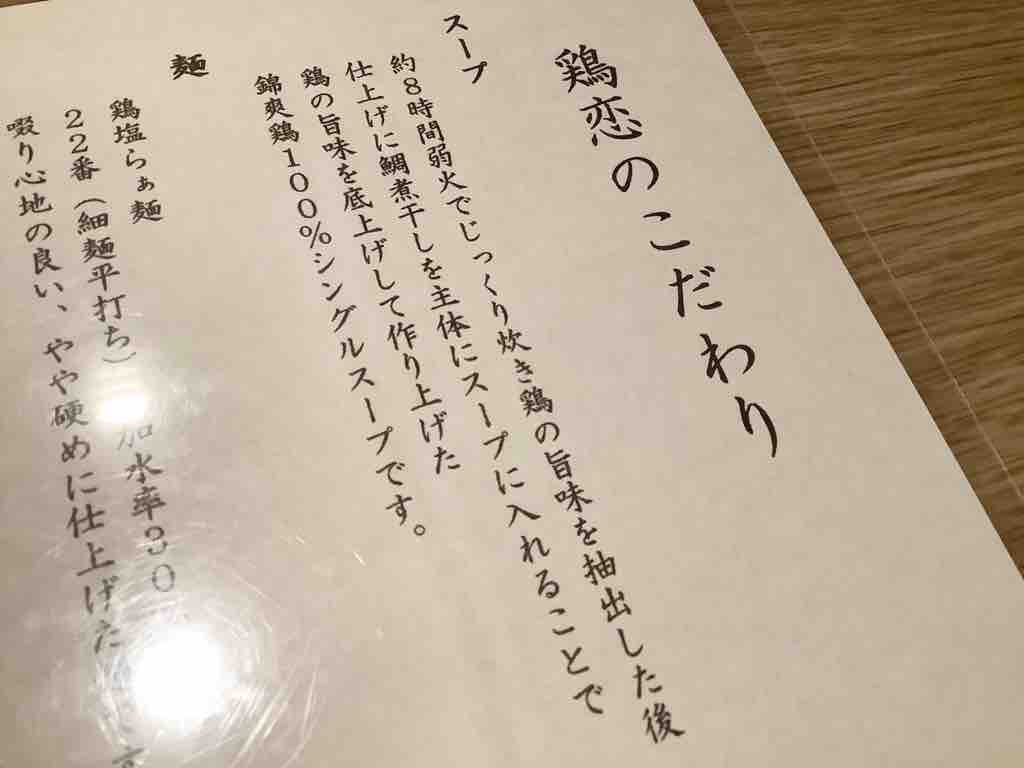 鶏恋のこだわり
スープ
約8時間弱火でじっくり炊き鶏の旨味を抽出した後
仕上げに鯛煮干しを主体にスープに入れることで
鶏の旨味を底上げして作り上げた
錦爽鶏100%シングルスープです。
麺
鶏塩らぁ麺
22番(細麺平打ち) 加水率30
啜り心地の良い、やや硬めに仕上げた